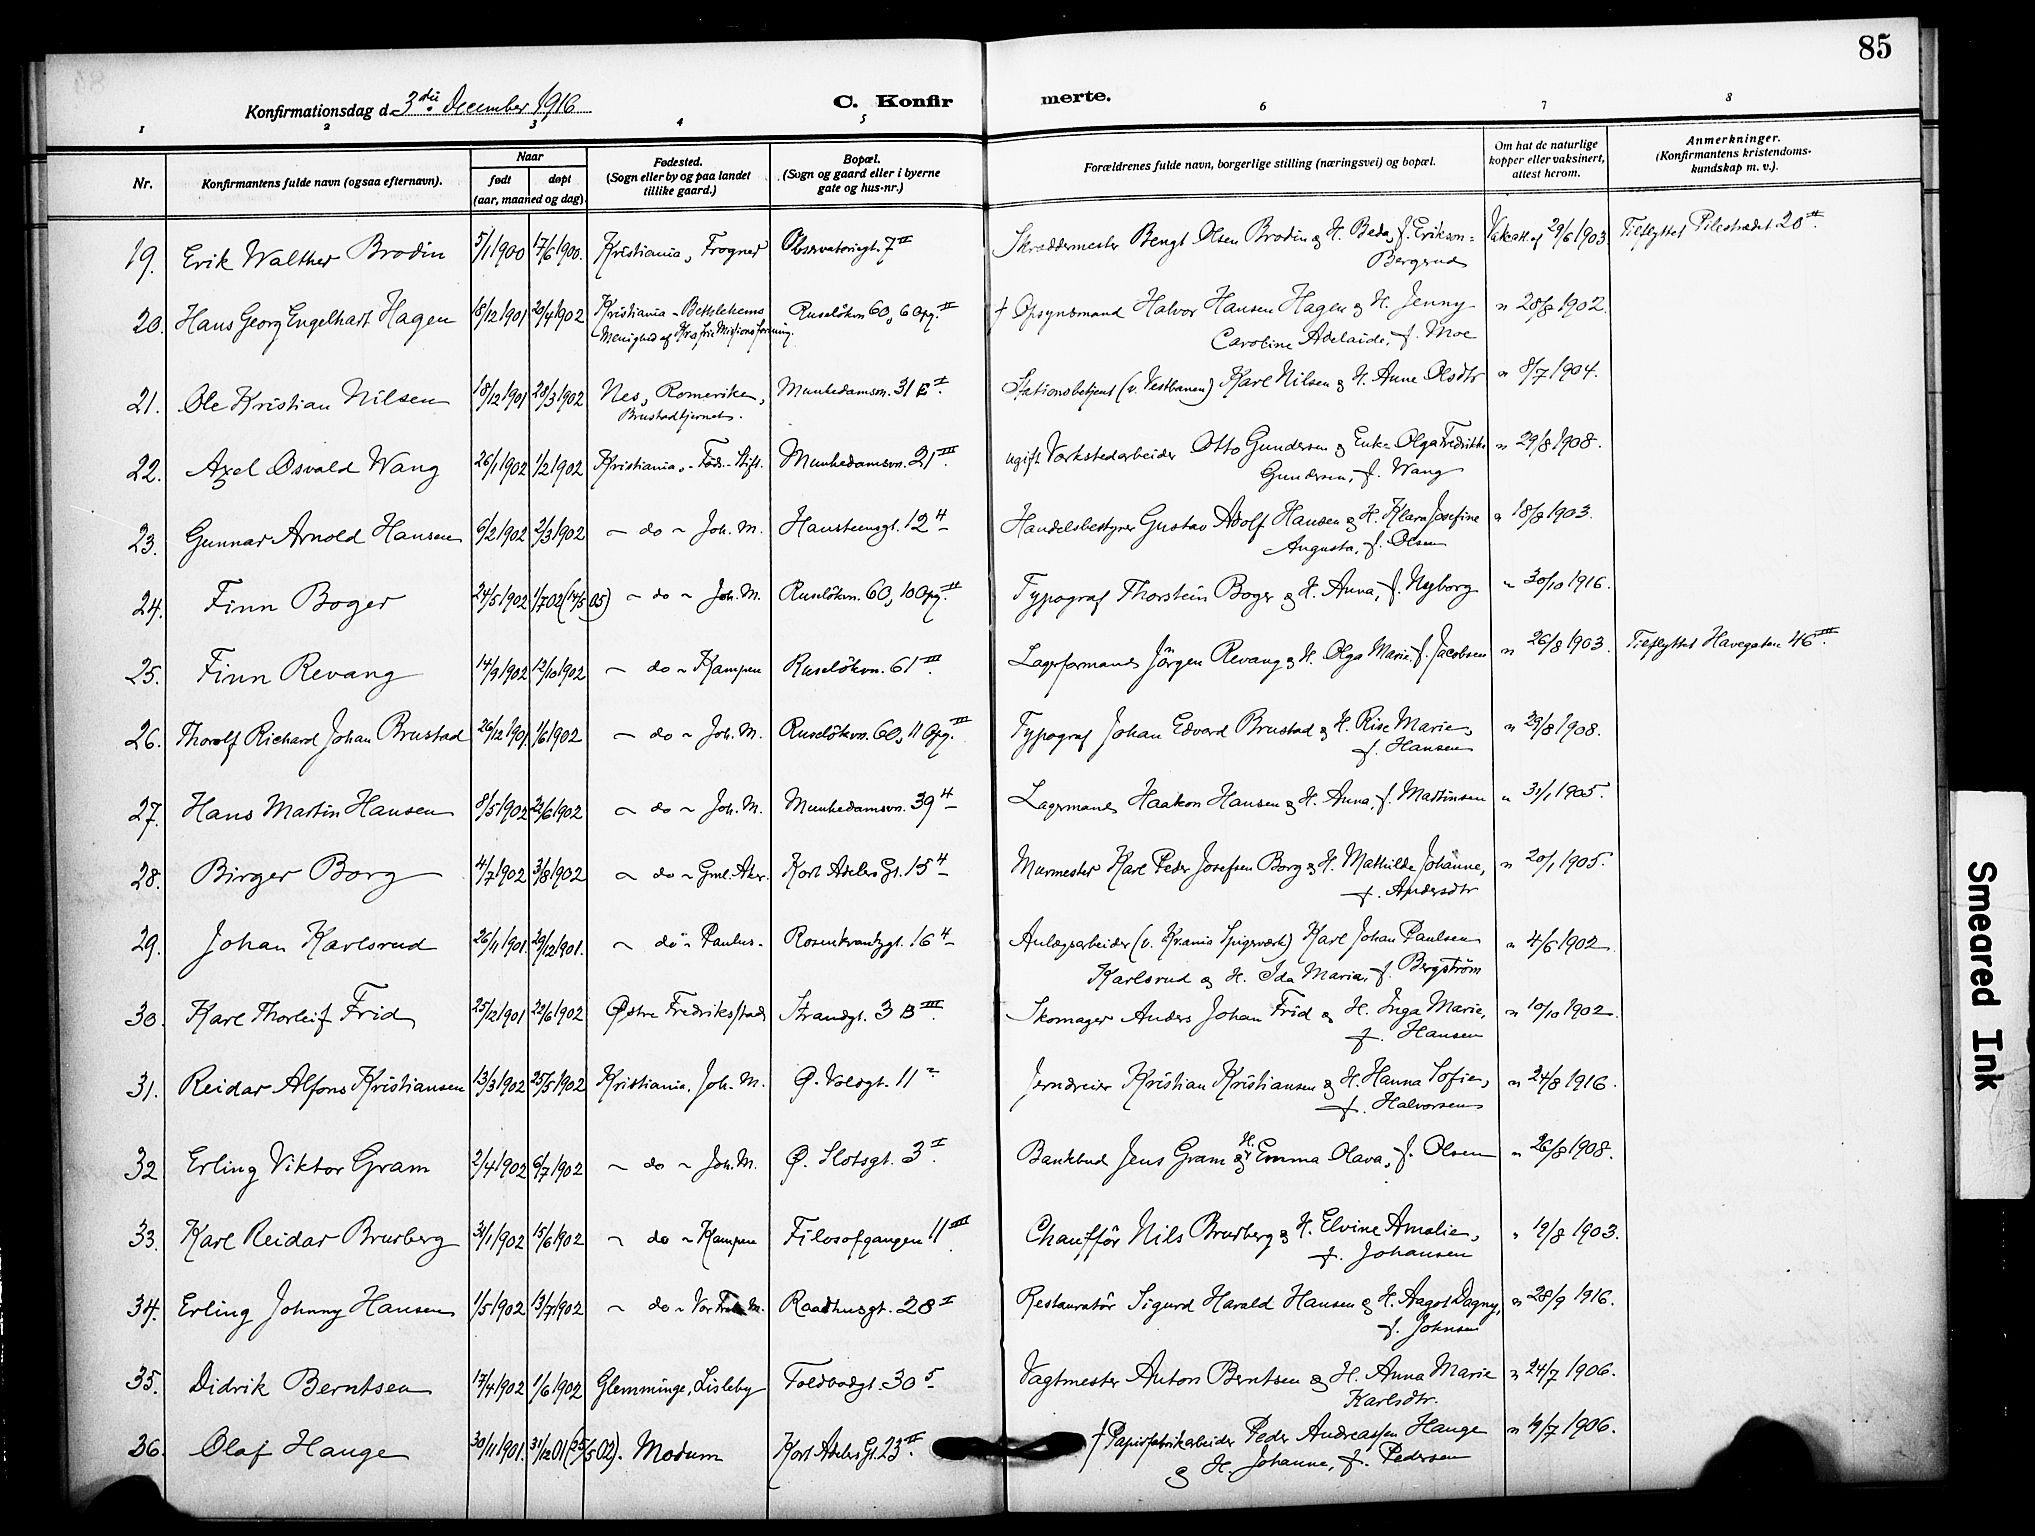 85
Konfirmationsdag d. 3die December 1916
C. Konfirmerte.
1 2 3 4 5 6 7 8
Nr.
Konfirmantens fulde navn (ogsaa efternavn).
Naar
født døpt
(aar, maaned og dag).
Fødested.
(Sogn eller by og paa landet
tillike gaard.)
Bopæl.
(Sogn og gaard eller i byerne
gate og hus-nr.)
Forældrenes fulde navn, borgerlige stilling (næringsvei) og bopæl.
Om hat de naturlige
kopper eller vaksinert,
attest herom.
Anmerkninger.
(Konfirmantens kristendoms-
kundskap m. v.).
19. Erik Walther Brodin 5/1 1900 17/6 1900. Kristiania, Frogner Observatoriegt. 7 II Skræddermester Bengt Olsen Brodin & H. Beda, f. Erikson- Vakatt. af 29/6 1903. Tilflyttet Pilestrædet 20 II
Bergerud
20. Hans Georg Engelhart Hagen 18/12 1901 20/4 1902 Kristiania - Bethlehems Ruseløkvn 60, 6 Opg. II † Opsynsmand Halvor Hansen Hagen & H. Jenny " 28/8 1902.
Menighed af Kra frie Missionsforening. Caroline Adelaide, f. Moe
21. Ole Kristian Nilsen 18/12 1901 28/3 1902 Nes, Romerike, Munkedamsvn. 31 E I Stationsbetjent (v. Vestbanen) Karl Nilsen & H. Anne Olsdtr " 8/7 1904.
Brustadtjernet.
22. Axel Osvald Wang 26/1 1902 1/2 1902 Kristiania, - Føds.- Stift. Munkedamsvn. 21 III ugift Verkstedarbeider Otto Gundersen & Enke Olga Fredrikke " 29/8 1908.
Gundersen, f. Wang
23. Gunnar Arnold Hansen 6/2 1902 2/3 1902 ~ do ~ Joh. M. Hansteensgt. 12 4 Handelsbestyrer Gustav Adolf Hansen & H. Klara Josefine " 18/8 1903.
Augusta, f. Olsen
24. Finn Boger 24/5 1902 1/7 02 (14/5 05) ~ do ~ Joh. M. Ruseløkvn. 60, 10 Opg. II Typograf Thorstein Boger & H. Anna, f. Nyborg " 30/10 1916.
25. Finn Revang 14/9 1902 12/10 1902 ~ do ~ Kampen Ruseløkvn. 61 III Lagerformand Jörgen Revang & H. Olga Marie f. Jacobsen " 26/8 1903. Tilflyttet Havegaten 46 III
26. Thorolf Richard Johan Brustad 26/12 1901. 1/6 1902 ~ do ~ Joh. M. Ruseløkvn. 60, 11 Opg. III Typograf Johan Edvard Brustad & H. Rise Marie, " 29/8 1908.
f. Hansen
27. Hans Martin Hansen 8/5 1902 22/6 1902 ~ do ~ Joh. M. Munkedamsvn. 39 4 Lagermand Haakon Hansen & H. Anna, f. Martinsen " 31/1 1905.
28. Birger Borg 4/7 1902 3/8 1902 ~ do ~ Gml. Aker. Kort Adelers Gt. 15 4 Murmester Karl Peder Josefsen Borg & H. Mathilde Johanne, " 20/1 1905.
f. Andersdtr
29. Johan Karlsrud 26/11 1901. 29/12 1901. ~ do ~ Paulus. Rosenkrantzgt. 16 4 Anlægsarbeider (v. Krania Spigerverk) Karl Johan Paulsen " 4/6 1902
Karlsrud & H. Ida Maria, f. Bergström
30. Karl Thorleif Frid 25/12 1901 22/6 1902 Østre Fredriksstad Strandgt. 3 B III Skomager Anders Johan Frid & H. Inga Marie, " 10/10 1902.
f. Hansen
31. Reidar Alfons Kristiansen 13/3 1902 25/5 1902 Kristiania, Joh. M. Ø. Voldgt. 11 Jerndreier Kristian Kristiansen & H. Hanna Sofie, " 24/8 1916.
f. Halvorsen
32 Erling Viktor Gram 2/4 1902 6/7 1902 ~ do ~ Joh. M. Ø. Slotsgt. 3 I Bankbud Jens Gram & H. Emma Olava, f. Olsen " 26/8 1908.
33. Karl Reidar Brurberg 31/1 1902 15/6 1902 ~ do ~ Kampen Filosofgangen 11 III Chaufför Nils Brurberg & H. Elvine Amalie, " 19/8 1903.
f. Johansen
34. Erling Johnny Hansen 1/5 1902 13/7 1902 ~ do ~ Vor Frels. M. Raadhusgt. 28 I Restauratör Sigurd Harald Hansen & H. Aagot Dagny, " 28/9 1916.
f. Johnsen
35. Didrik Berntsen 17/4 1902 1/6 1902 Glemminge, Lisleby Toldbodgt. 30 5 Vagtmester Anton Berntsen & H. Anna Marie " 24/7 1906.
Karlsdtr.
36. Olaf Hauge 30/11 1901. 31/12 01 (25/5 02). Modum Kort Adelers Gt. 23 II † Papirfabrikarbeider Peder Andreassen Hauge " 4/7 1906.
& H. Johanne, f. Pedersen
Smeared Ink